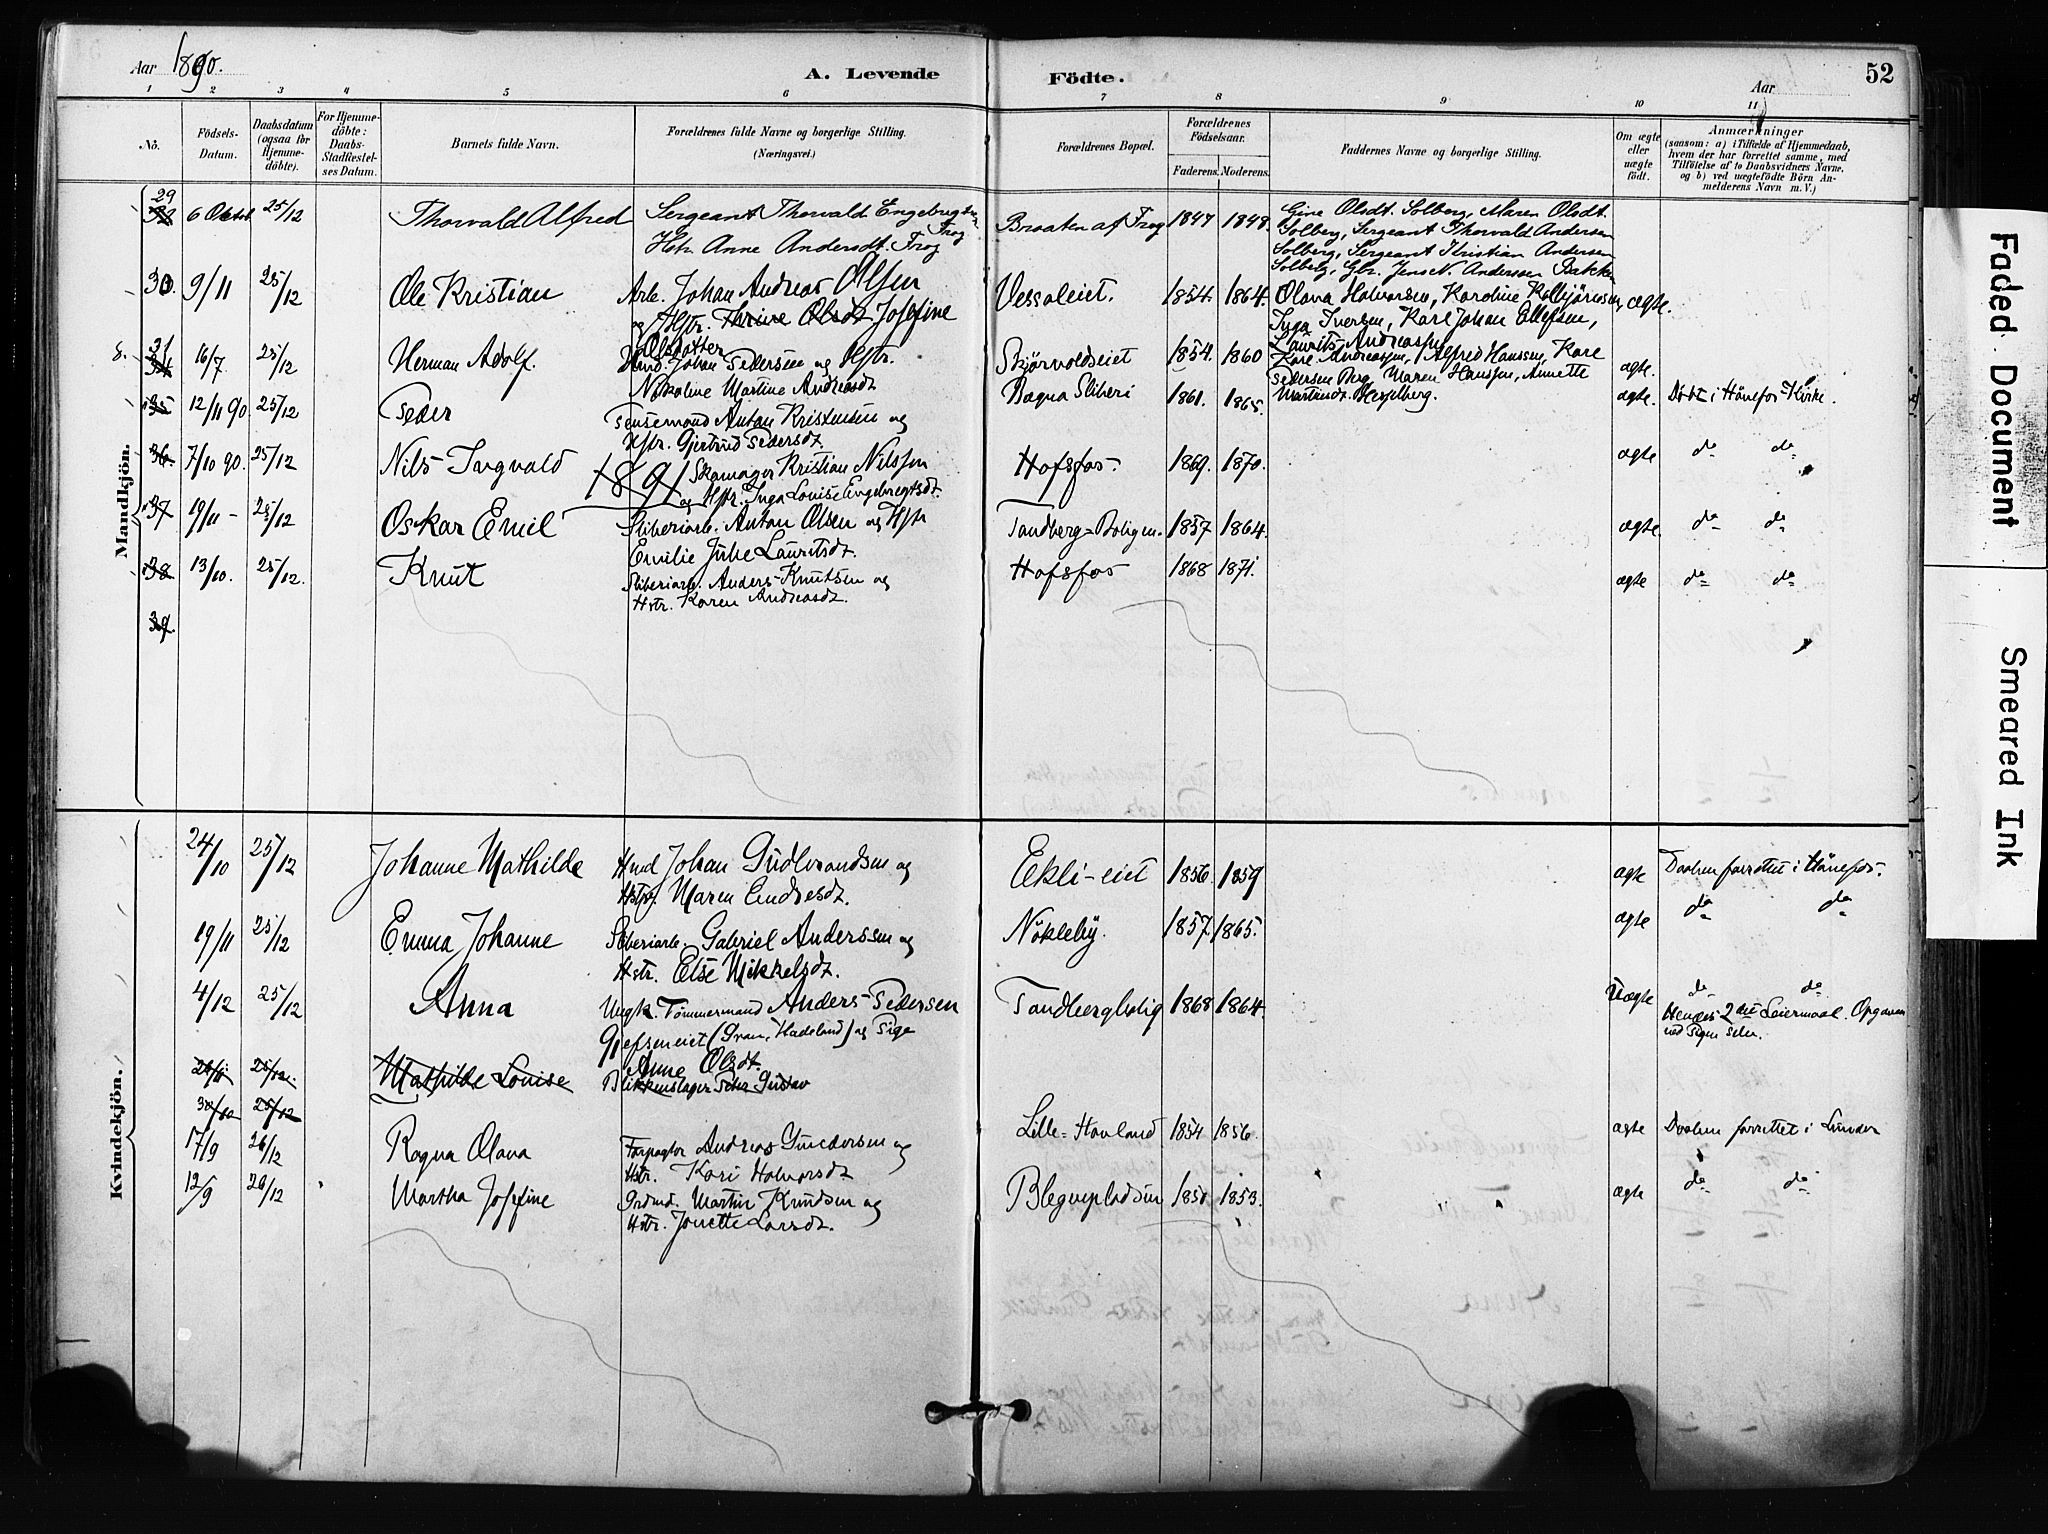 Aar 1890.
A. Levende
Födte.
Aar
52
1 2 3 4 5 6 7 8 9 10 11
No.
Födsels-
Datum.
Daabsdatum
(ogsaa for
Hjemme-
döbte).
For Hjemme-
döbte:
Daabs-
Stadfæstel-
ses Datum.
Barnets fulde Navn.
Forældrenes fulde Navne og borgerlige Stilling.
(Næringsvei.)
Forældrenes Bopæl.
Forældrenes
Födselsaar.
Faderens. Moderens.
Faddernes Navne og borgerlige Stilling.
Om ægte
eller
uægte
födt.
Anmærkninger
(saasom: a) i Tilfælde af Hjemmedaab,
hvem der har forrettet samme, med
Tilföielse af to Daabsvidners Navne,
og b) ved uægtefödte Börn An-
melderens Navn m. V.)
Mandkjön.
29
6 Oktob. 25/12 Thorvald Alfred Sergeant Thorvald Engebregtsen Frog
Hstr. Anne Andersdt. Frog
Braaten af Frog 1847 1848.
Gine Olsdt. Solberg, Maren Olsdt.
Solberg, Sergeant Thorvald Andersen
Solberg, Sergeant Kristian Andersen
Solberg, Gbr. Jens N. Anderssen Bakken
30. 9/11 25/12 Ole Kristian Arb. Johan Andreas Olsen
og Hstr. Thrine Olsdt Josefine
Olsdatter
Vessaleiet. 1854. 1864.
Olava Halvorsen, Karoline Kolbjörnsen, ægte.
Inga Iversen, Karl Johan Ellefsen,
Laurits Andreassen
8. 31 34 16/7 25/12 Herman Adolf. Hmd. Johan Pedersen og Hstr.
Nikoline Martine Andreasdt
Skjörvoldseiet 1854. 1860
Karl Andreassen, Alfred Hanssen, Karl
Pedersen Berg, Maren Hanssen, Annette
Martinsdt. Hesselberg. ægte.
35 12/11 90 25/12 Peder
Tensemand Anton Kristensen og
Hstr. Gjertrud Pedersdt.
Bægna Sliberi 1861. 1865. ægte. Döbt i Hönefos Kirke.
36. 7/10 90. 25/12 Nils Ingvald 1891 Skomager Kristian Nilssen
og Hstr. Inga Louise Engebregtsdt.
Hofsfos. 1869. 1870. ægte do do
37 19/11 - 25/12 Oskar Emil Sliberiarb. Anton Olsen og Hstr
Emilie Julie Lauritsdt.
Tandberg-Boligen. 1857 1864. ægte. do do
38 13/10. 25/12. Knut Sliberiarb. Anders Knutsen og
Hstr. Karen Andreasdt.
Hofsfos 1868 1871. ægte do do
39.
Kvindekjön.
24/10 25/12 Johanne Mathilde Hmd Johan Gudbrandsen og
Hstr. Maren Endresdt.
Ekli-eiet 1856. 1859 ægte Daaben forrettet i Hönefos.
19/11 25/12 Emma Johanne Sliberiarb. Gabriel Anderssen og
Hstr. Else Mikkelsdt.
Nökleby. 1857. 1865. ægte do do
4/12 25/12 Anna Ungk. Tömmermand Anders Pedersen
Gjefsmeiet (Gran, Hadeland) og Pige
Anne Olsdt.
Tandbergbolig 1868 1864. Uægte do do
Hendes 2det Leiermaal. Opgaven
ved Pigen selv.
25/12. Mathilde Louise Blikkenslager Peter Gustav
30/10 25/12
17/9 26/12 Ragna Olava Forpagter Andreas Gundersen og
Hstr. Kari Halvorsdt
Lille-Hovland 1854 1856. ægte Daaben forrettet i Lunder
12/9 26/12 Martha Josefine Grdmd. Martin Knudsen og
Hstr. Jonette Larsdt.
Blegnepladsen 1850. 1853. ægte do do
Faded Document
Smeared Ink